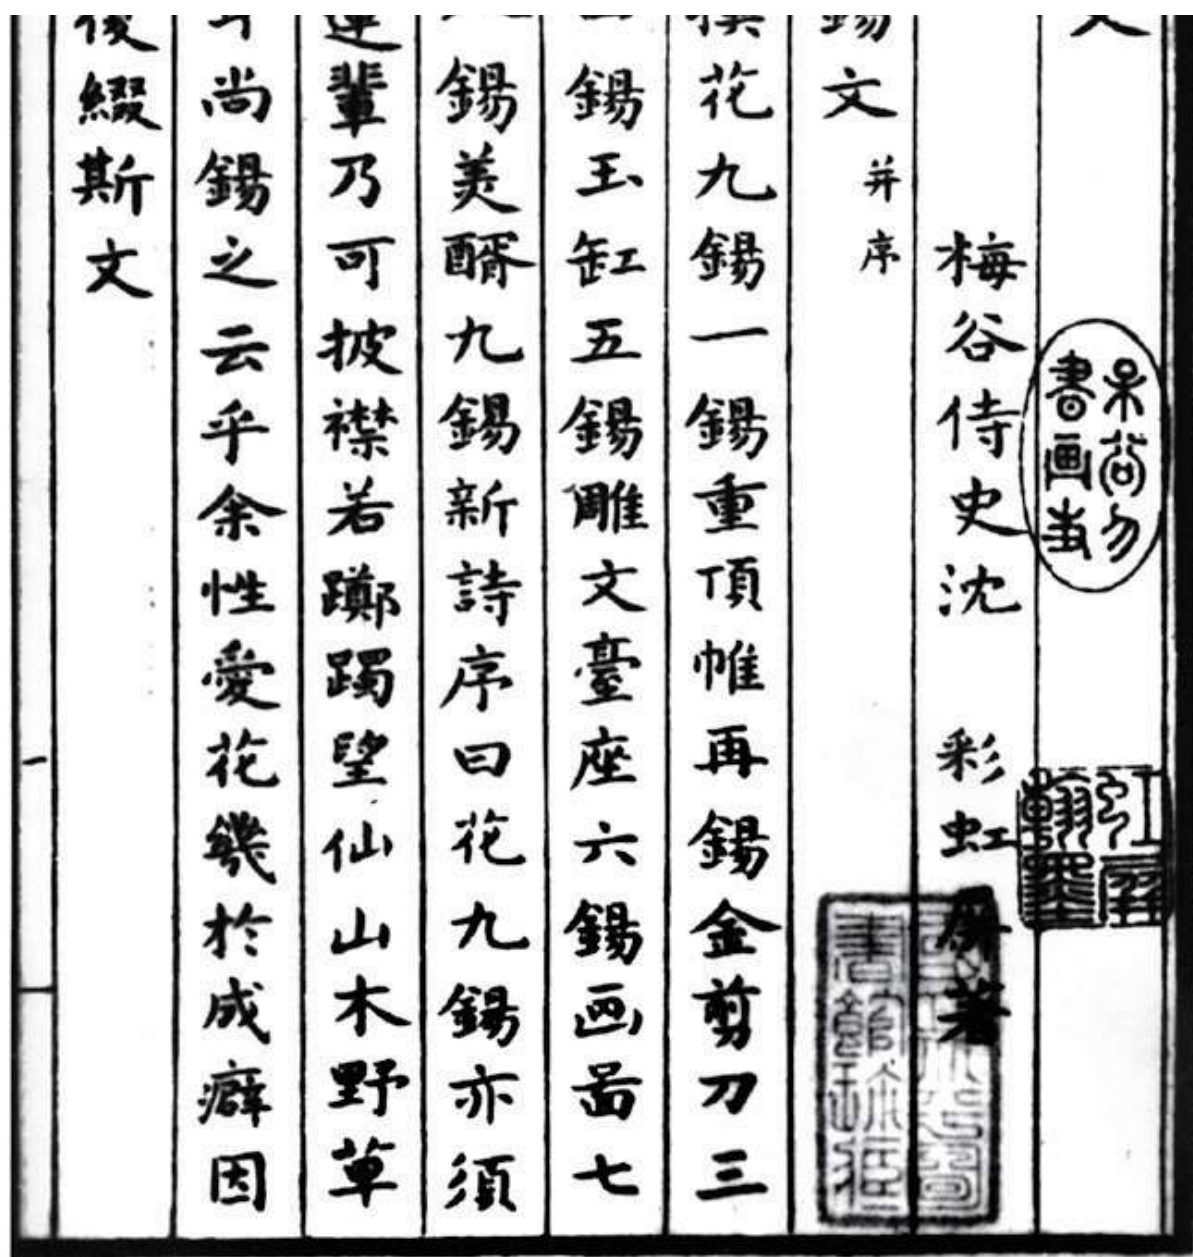 梅谷侍史沈 彩虹屏著
文并序
花九錫一錫重頂帷再錫金剪刀三
錫玉缸五錫雕文臺座六錫画啚七
錫美醑九錫新詩序曰花九錫亦須
輩乃可披襟若躑躅望仙山木野草
尚錫之云乎余性愛花幾於成癖因
綴斯文
書画
虹屏翰墨